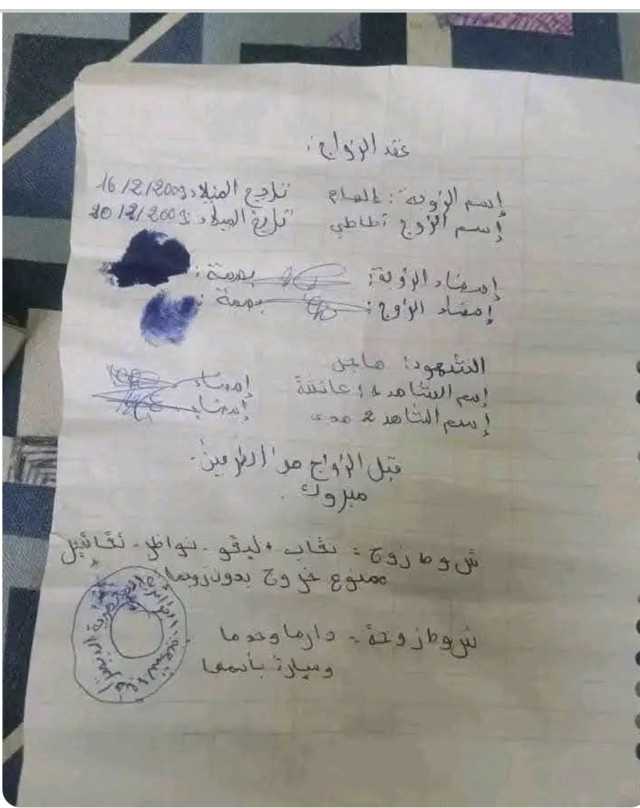 عقد الزواج:
إسم الزوجة: إلهام تاريخ الميلاد: 16/2/2009
إسم الزوج تاريخ الميلاد: 20/12/2003
إمضاء الزوجة: بصمة:
إمضاء الزوج: بصمة:
الشهود: هاجر
إسم الشاهد 1: عائشة إمضاء
إسم الشاهد 2 هدى إمضاء
قبل الزواج من الطرفين.
مبروك.
شروط زوج = نقاب + ليقو - نواظر -
ممنوع خروج بدون زوجها
شروط زوجة = دارها وحدها
وسيارة بأسمها